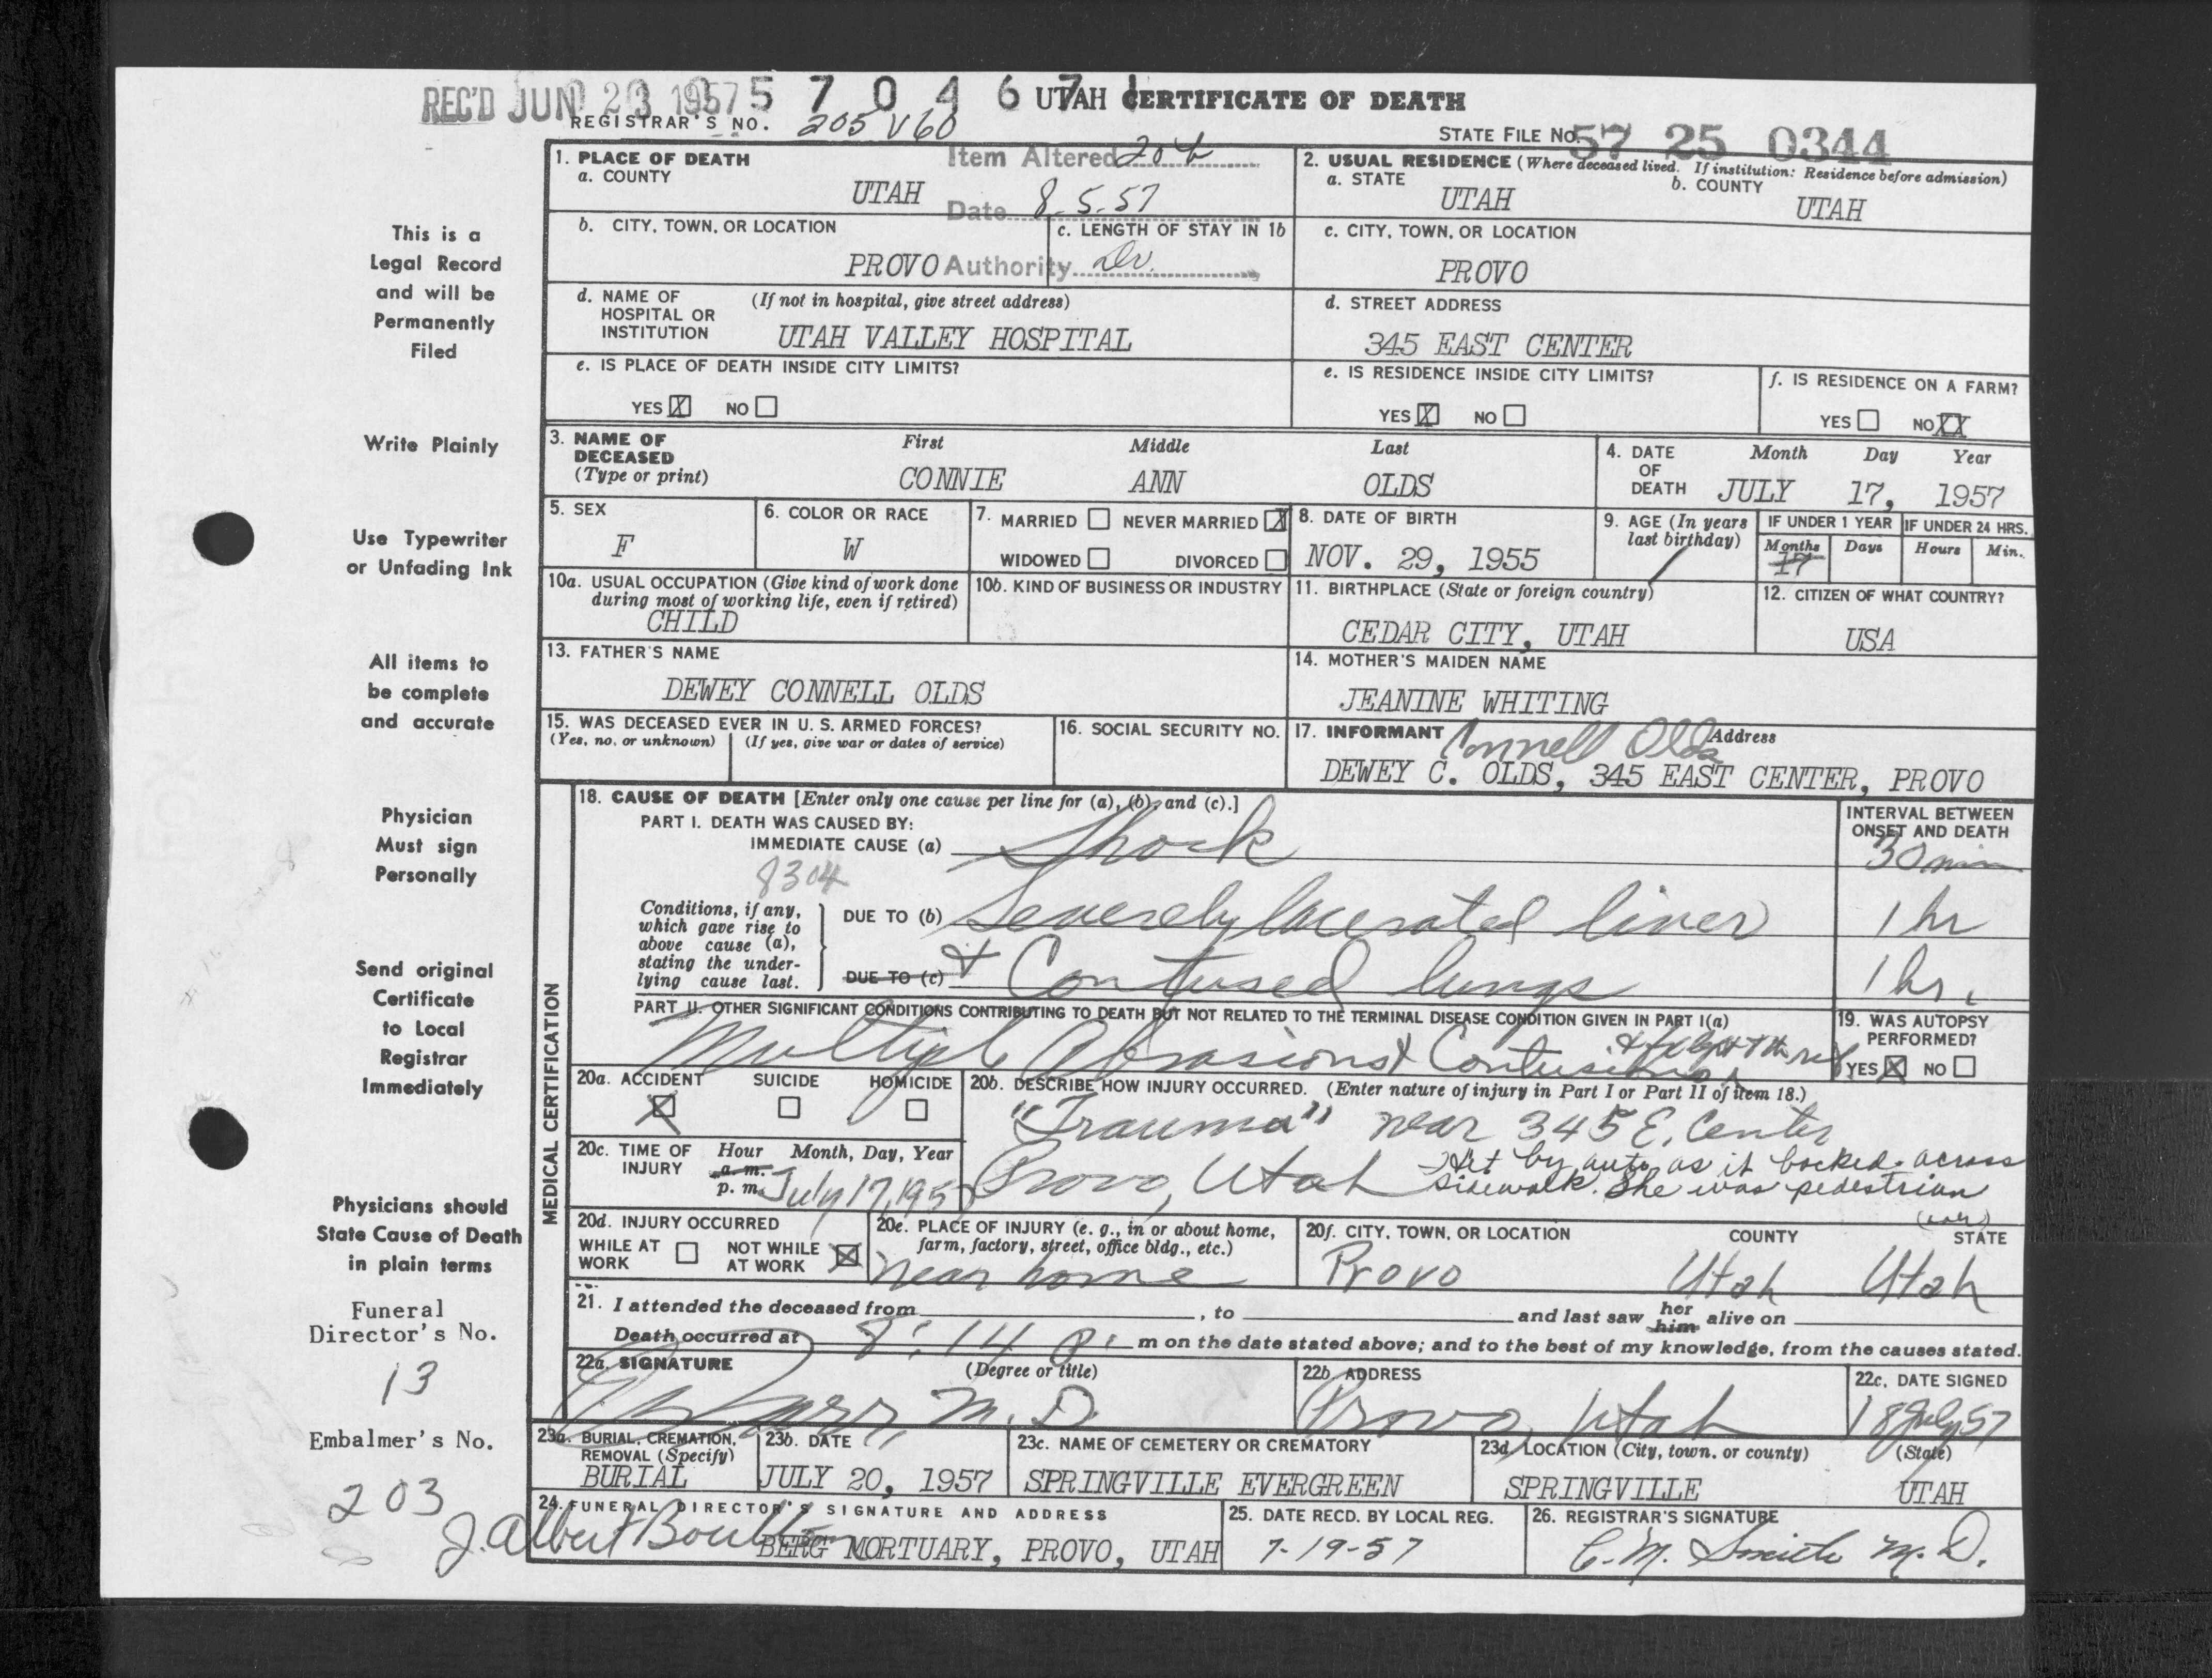 REC'D JUN 23 1957 5 7 0 4 6 7 1 UTAH CERTIFICATE OF DEATH
REGISTRAR'S NO. 205 V60
STATE FILE NO. 57 25 0344
1. PLACE OF DEATH
a. COUNTY
UTAH
Item Altered 20b
Date 8.5.57
Authority Dr.
2. USUAL RESIDENCE (Where deceased lived. If institution: Residence before admission)
a. STATE
UTAH
b. COUNTY
UTAH
b. CITY, TOWN, OR LOCATION
PROVO
c. LENGTH OF STAY IN 1b
c. CITY, TOWN, OR LOCATION
PROVO
d. NAME OF HOSPITAL OR INSTITUTION
(If not in hospital, give street address)
UTAH VALLEY HOSPITAL
d. STREET ADDRESS
345 EAST CENTER
e. IS PLACE OF DEATH INSIDE CITY LIMITS?
YES X NO
e. IS RESIDENCE INSIDE CITY LIMITS?
YES X NO
f. IS RESIDENCE ON A FARM?
YES NO XX
3. NAME OF DECEASED (Type or print)
First Middle Last
CONNIE ANN OLDS
4. DATE OF DEATH
Month Day Year
JULY 17, 1957
5. SEX
F
6. COLOR OR RACE
W
7. MARRIED NEVER MARRIED X
WIDOWED DIVORCED
8. DATE OF BIRTH
NOV. 29, 1955
9. AGE (In years last birthday)
1
IF UNDER 1 YEAR
Months Days
17
IF UNDER 24 HRS.
Hours Min.
10a. USUAL OCCUPATION (Give kind of work done during most of working life, even if retired)
CHILD
10b. KIND OF BUSINESS OR INDUSTRY
11. BIRTHPLACE (State or foreign country)
CEDAR CITY, UTAH
12. CITIZEN OF WHAT COUNTRY?
USA
13. FATHER'S NAME
DEWEY CONNELL OLDS
14. MOTHER'S MAIDEN NAME
JEANINE WHITING
15. WAS DECEASED EVER IN U. S. ARMED FORCES?
(Yes, no, or unknown) (If yes, give war or dates of service)
16. SOCIAL SECURITY NO.
17. INFORMANT Connell Olds Address
DEWEY C. OLDS, 345 EAST CENTER, PROVO
MEDICAL CERTIFICATION
18. CAUSE OF DEATH [Enter only one cause per line for (a), (b), and (c).]
PART I. DEATH WAS CAUSED BY:
IMMEDIATE CAUSE (a) Shock
8304
INTERVAL BETWEEN ONSET AND DEATH
30 min
Conditions, if any, which gave rise to above cause (a), stating the underlying cause last.
DUE TO (b) Severely lacerated liver
1 hr
DUE TO (c) & Contused lungs
1 hr.
PART II. OTHER SIGNIFICANT CONDITIONS CONTRIBUTING TO DEATH BUT NOT RELATED TO THE TERMINAL DISEASE CONDITION GIVEN IN PART I(a)
Multiple Abrasions & Contusions
19. WAS AUTOPSY PERFORMED?
YES X NO
20a. ACCIDENT SUICIDE HOMICIDE
X
20b. DESCRIBE HOW INJURY OCCURRED. (Enter nature of injury in Part I or Part II of item 18.)
"Trauma" near 345 E. Center
Provo, Utah
Hit by auto as it backed across
sidewalk. She was pedestrian
20c. TIME OF INJURY
Hour Month, Day, Year
a. m.
p. m. July 17, 1957
20d. INJURY OCCURRED
WHILE AT WORK NOT WHILE AT WORK X
20e. PLACE OF INJURY (e. g., in or about home, farm, factory, street, office bldg., etc.)
near home
20f. CITY, TOWN, OR LOCATION COUNTY STATE
Provo Utah Utah
21. I attended the deceased from , to and last saw her him alive on
Death occurred at 8:14 p. m on the date stated above; and to the best of my knowledge, from the causes stated.
22a. SIGNATURE (Degree or title)
M. D.
22b. ADDRESS
Provo, Utah
22c. DATE SIGNED
18 July 57
23a. BURIAL, CREMATION, REMOVAL (Specify)
BURIAL
23b. DATE
JULY 20, 1957
23c. NAME OF CEMETERY OR CREMATORY
SPRINGVILLE EVERGREEN
23d. LOCATION (City, town, or county) (State)
SPRINGVILLE UTAH
24. FUNERAL DIRECTOR'S SIGNATURE AND ADDRESS
J. Albert Boulton
BERG MORTUARY, PROVO, UTAH
25. DATE RECD. BY LOCAL REG.
7-19-57
26. REGISTRAR'S SIGNATURE
C. M. Smith M. D.
This is a
Legal Record
and will be
Permanently
Filed
Write Plainly
Use Typewriter
or Unfading Ink
All items to
be complete
and accurate
Physician
Must sign
Personally
Send original
Certificate
to Local
Registrar
Immediately
Physicians should
State Cause of Death
in plain terms
Funeral
Director's No.
13
Embalmer's No.
203